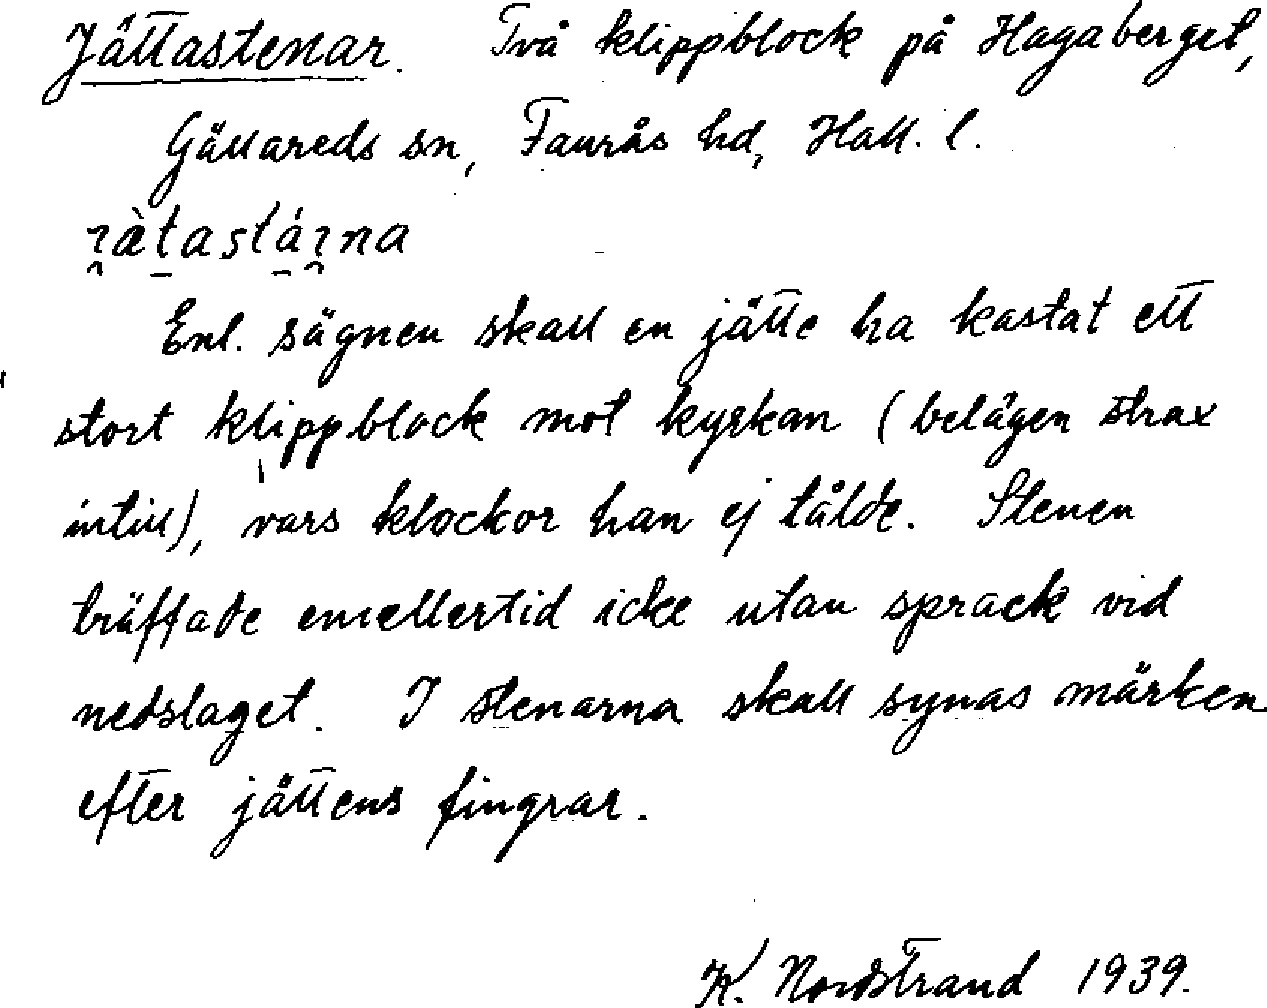 Jättastenar. Två klippblock på Hagaberget,
Gällareds sn, Faurås hd, Hall. l.
Enl. sägnen skall en jätte ha kastat ett
stort klippblock mot kyrkan (belägen strax
intill), vars klockor han ej tålde. Stenen
träffade emellertid icke utan sprack vid
nedslaget. I stenarna skall synas märken
efter jättens fingrar.
K. Nordstrand 1939.